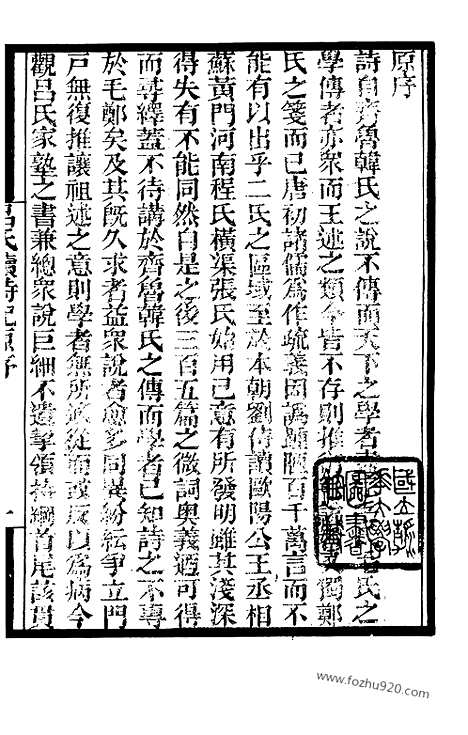 原序
詩自齊魯韓氏之說不傳而天下之學者盡宗毛氏毛氏之
學傳者亦衆而王述之類今皆不存則推衍說者又獨鄭
氏之箋而已唐初諸儒爲作疏義因譌踵陋百千萬言而不
能有以出乎二氏之區域至於本朝劉侍讀歐陽公王丞相
蘇黃門河南程氏橫渠張氏始用己意有所發明雖其淺深
得失有不能同然自是之後三百五篇之微詞奧義廼可得
而尋繹蓋不待講於齊魯韓氏之傳而學者已知詩之不專
於毛鄭矣及其旣久求者益衆說者愈多同異紛紜爭立門
戶無復推讓祖述之意則學者無所適從而或反以爲病今
觀呂氏家塾之書兼總衆說巨細不遺挈領持綱首尾該貫
呂氏讀詩記原序
一
www.fozhu920.com